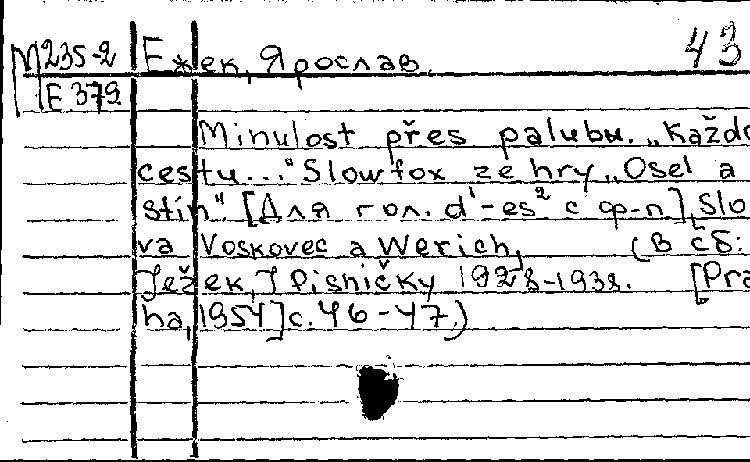 М235-2 Ежек, Ярослав. 43
Е 379
Minulost přes palubu. „Každo
cestu..." Slowfox ze hry „Osel a
stín" [Для гол. d¹-es² с ф-п], Slo
va Voskovec a Werich, (В сб:
Ježek, J Písničky 1928-1938. [Pra
ha, 1954] с. 46-47.)